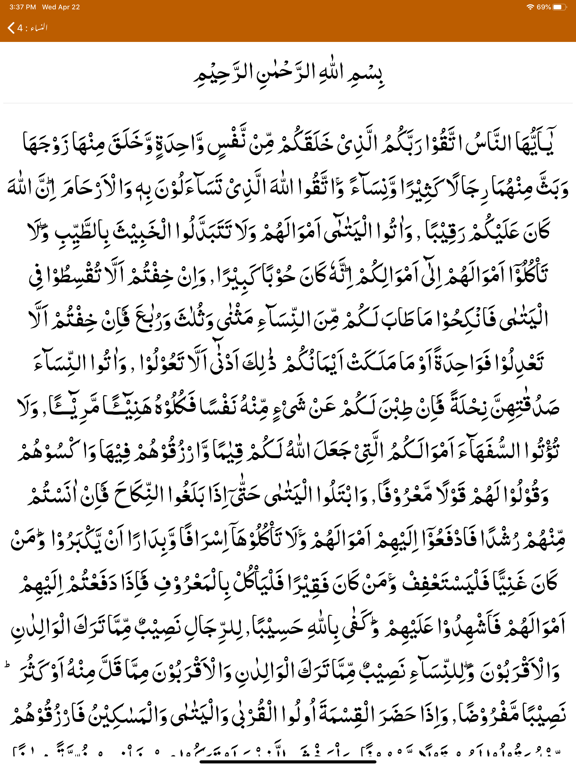 3:37 PM Wed Apr 22 69%
النساء : 4
بِسْمِ اللهِ الرَّحْمٰنِ الرَّحِيْمِ
يٰۤاَيُّهَا النَّاسُ اتَّقُوْا رَبَّكُمُ الَّذِىْ خَلَقَكُمْ مِّنْ نَّفْسٍ وَّاحِدَةٍ وَّخَلَقَ مِنْهَا زَوْجَهَا
وَبَثَّ مِنْهُمَا رِجَالًا كَثِيْرًا وَّنِسَآءً وَّاتَّقُوا اللهَ الَّذِىْ تَسَآءَلُوْنَ بِهٖ وَالْاَرْحَامَ اِنَّ اللهَ
كَانَ عَلَيْكُمْ رَقِيْبًا , وَاٰتُوا الْيَتٰمٰٓى اَمْوَالَهُمْ وَلَا تَتَبَدَّلُوا الْخَبِيْثَ بِالطَّيِّبِ وَلَا
تَاْكُلُوْٓا اَمْوَالَهُمْ اِلٰٓى اَمْوَالِكُمْ اِنَّهٗ كَانَ حُوْبًا كَبِيْرًا, وَاِنْ خِفْتُمْ اَلَّا تُقْسِطُوْا فِى
الْيَتٰمٰى فَانْكِحُوْا مَا طَابَ لَكُمْ مِّنَ النِّسَآءِ مَثْنٰى وَثُلٰثَ وَرُبٰعَ فَاِنْ خِفْتُمْ اَلَّا
تَعْدِلُوْا فَوَاحِدَةً اَوْ مَا مَلَكَتْ اَيْمَانُكُمْ ذٰلِكَ اَدْنٰٓى اَلَّا تَعُوْلُوْا , وَاٰتُوا النِّسَآءَ
صَدُقٰتِهِنَّ نِحْلَةً فَاِنْ طِبْنَ لَكُمْ عَنْ شَىْءٍ مِّنْهُ نَفْسًا فَكُلُوْهُ هَنِيْٓـًٔا مَّرِيْٓـًٔا, وَلَا
تُؤْتُوا السُّفَهَآءَ اَمْوَالَكُمُ الَّتِىْ جَعَلَ اللهُ لَكُمْ قِيٰمًا وَّارْزُقُوْهُمْ فِيْهَا وَاكْسُوْهُمْ
وَقُوْلُوْا لَهُمْ قَوْلًا مَّعْرُوْفًا, وَابْتَلُوا الْيَتٰمٰى حَتّٰٓى اِذَا بَلَغُوا النِّكَاحَ فَاِنْ اٰنَسْتُمْ
مِّنْهُمْ رُشْدًا فَادْفَعُوْٓا اِلَيْهِمْ اَمْوَالَهُمْ وَلَا تَاْكُلُوْهَآ اِسْرَافًا وَّبِدَارًا اَنْ يَّكْبَرُوْا وَمَنْ
كَانَ غَنِيًّا فَلْيَسْتَعْفِفْ وَمَنْ كَانَ فَقِيْرًا فَلْيَاْكُلْ بِالْمَعْرُوْفِ فَاِذَا دَفَعْتُمْ اِلَيْهِمْ
اَمْوَالَهُمْ فَاَشْهِدُوْا عَلَيْهِمْ وَكَفٰى بِاللهِ حَسِيْبًا, لِلرِّجَالِ نَصِيْبٌ مِّمَّا تَرَكَ الْوَالِدٰنِ
وَالْاَقْرَبُوْنَ وَلِلنِّسَآءِ نَصِيْبٌ مِّمَّا تَرَكَ الْوَالِدٰنِ وَالْاَقْرَبُوْنَ مِمَّا قَلَّ مِنْهُ اَوْ كَثُرَ
نَصِيْبًا مَّفْرُوْضًا, وَاِذَا حَضَرَ الْقِسْمَةَ اُولُوا الْقُرْبٰى وَالْيَتٰمٰى وَالْمَسٰكِيْنُ فَارْزُقُوْهُمْ